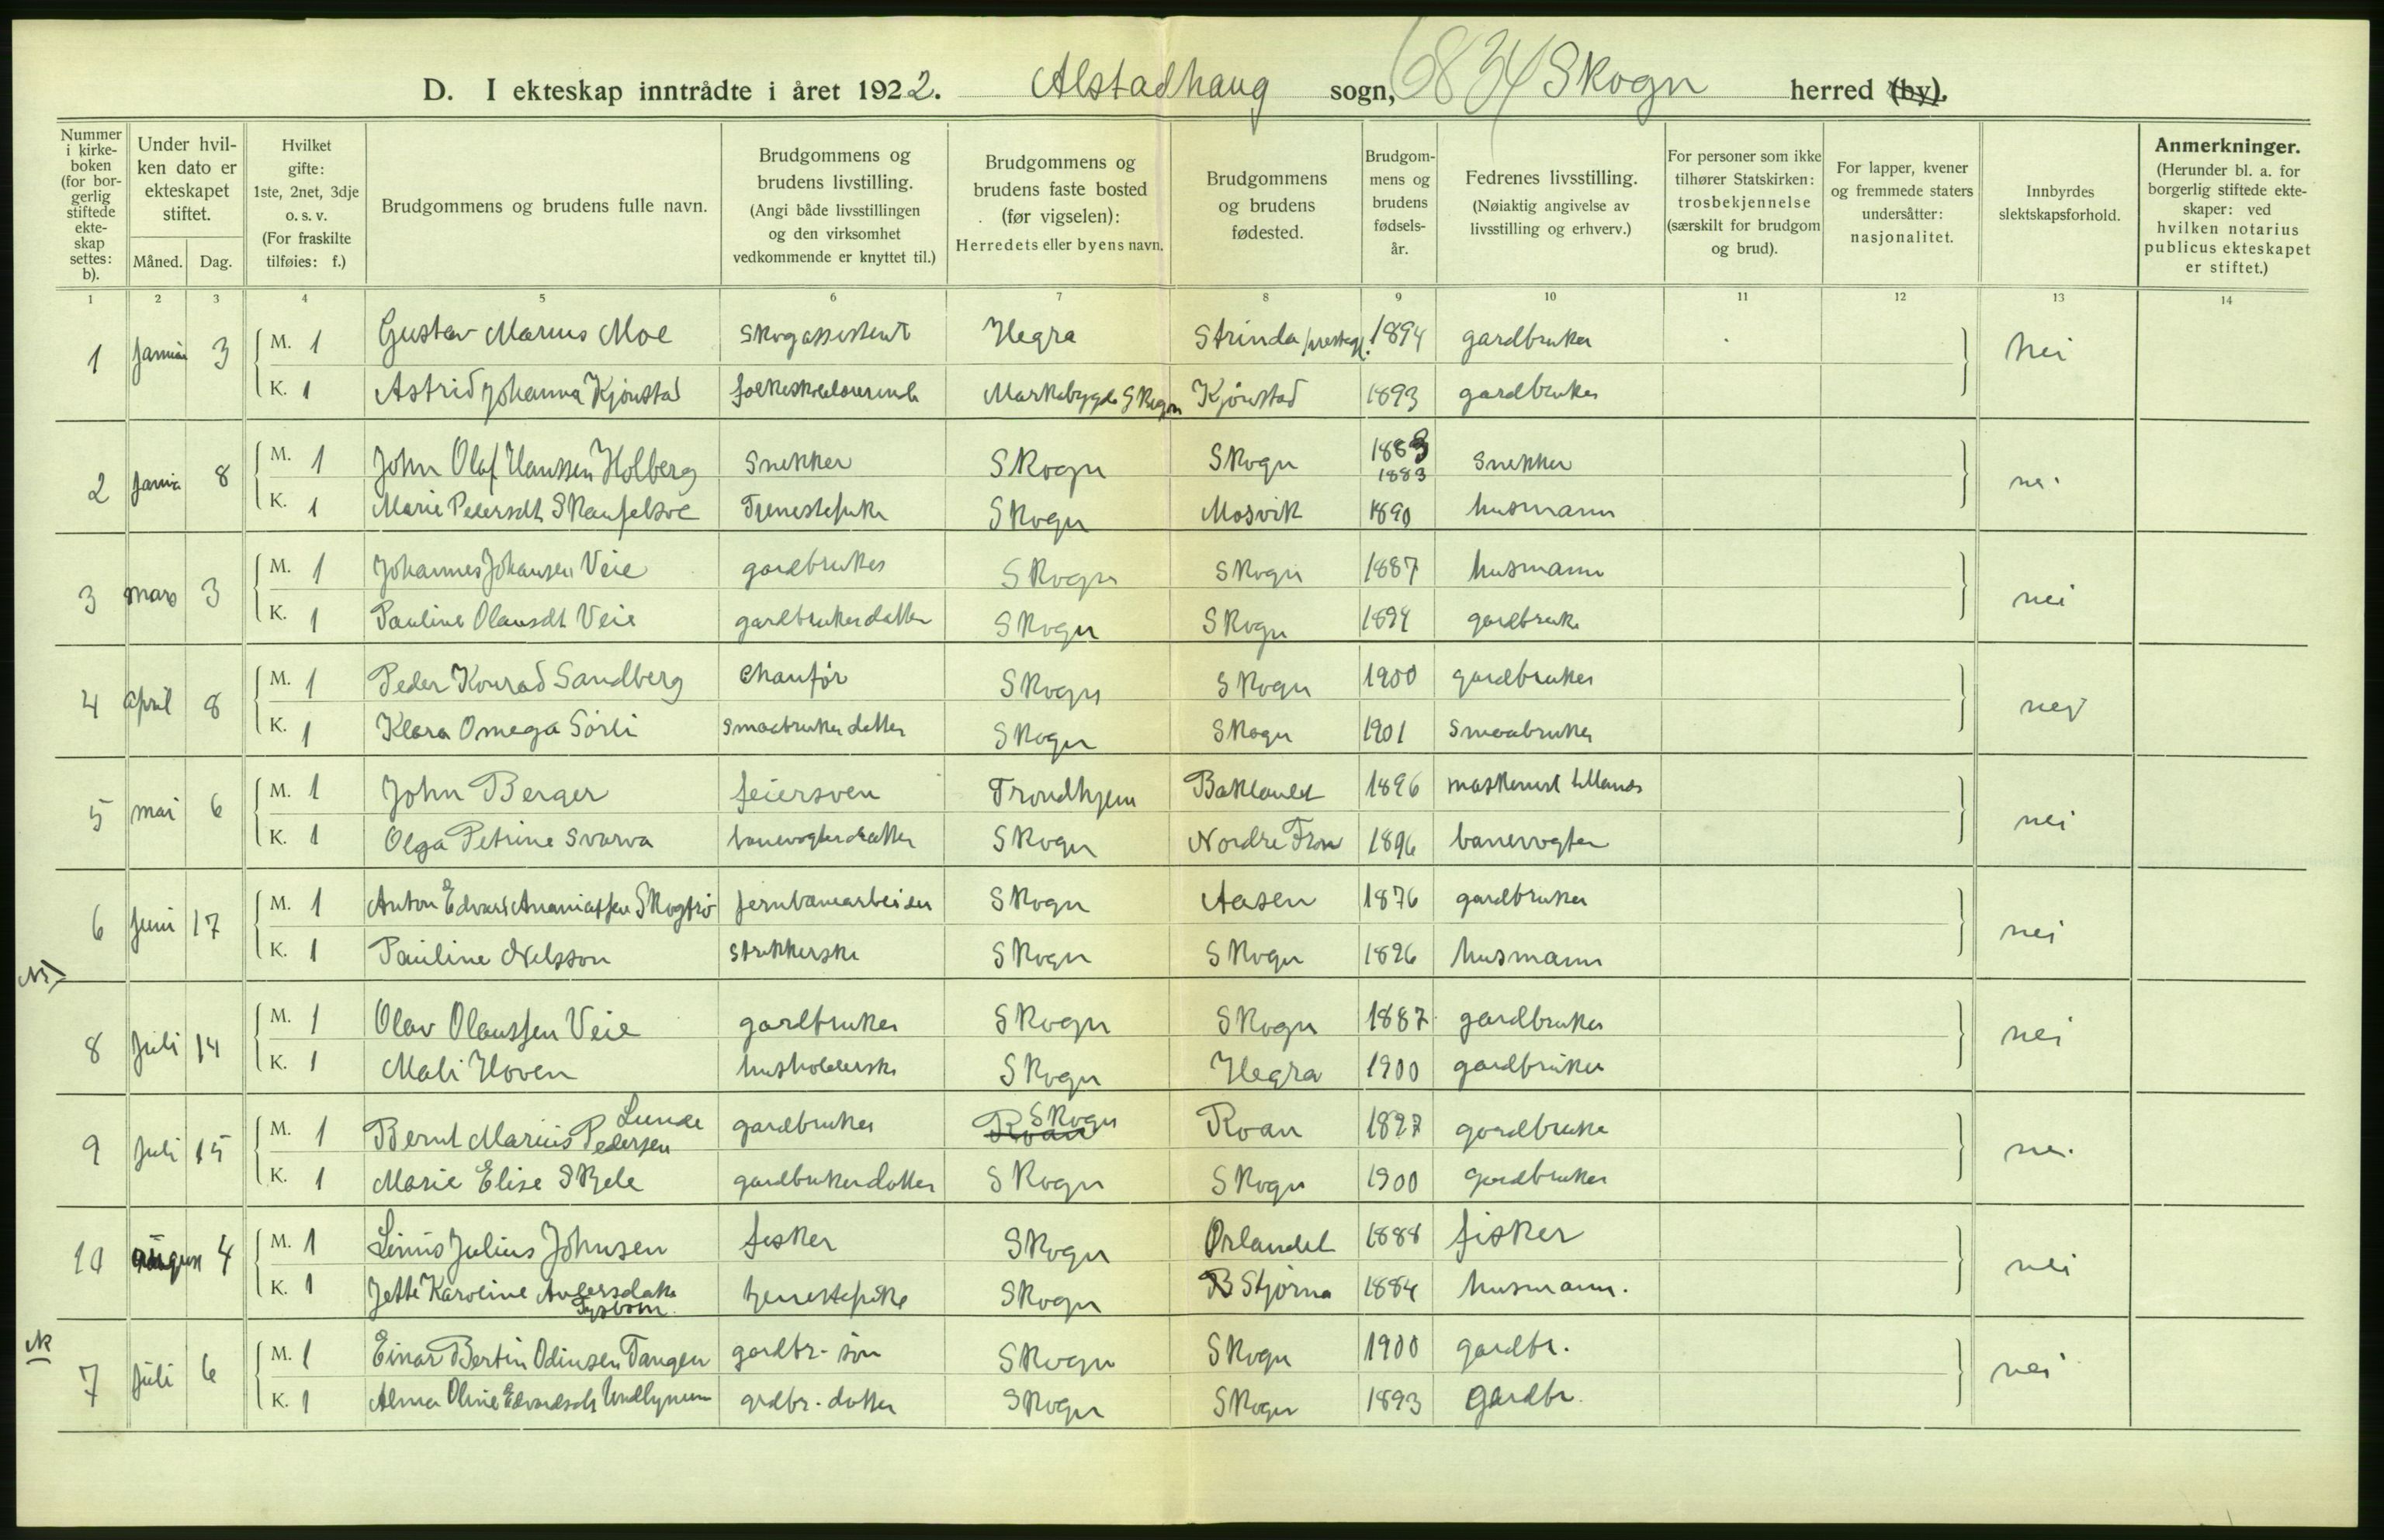 D. I ekteskap inntrådte i året 1922. Alstadhaug sogn, 6834 Skogn herred (by).
Nummer i kirkeboken (for borgerlig stiftede ekteskap settes: b).
Under hvilken dato er ekteskapet stiftet.
Måned. Dag.
Hvilket gifte: 1ste, 2net, 3dje o. s. v. (For fraskilte tilføies: f.)
Brudgommens og brudens fulle navn.
Brudgommens og brudens livstilling. (Angi både livsstillingen og den virksomhet vedkommende er knyttet til.)
Brudgommens og brudens faste bosted (før vigselen): Herredets eller byens navn.
Brudgommens og brudens fødested.
Brudgommens og brudens fødselsår.
Fedrenes livsstilling. (Nøiaktig angivelse av livsstilling og erhverv.)
For personer som ikke tilhører Statskirken: trosbekjennelse (særskilt for brudgom og brud).
For lapper, kvener og fremmede staters undersåtter: nasjonalitet.
Innbyrdes slektskapsforhold.
Anmerkninger. (Herunder bl. a. for borgerlig stiftede ekteskaper: ved hvilken notarius publicus ekteskapet er stiftet.)
1 2 3 4 5 6 7 8 9 10 11 12 13 14
1 Januar 3 M. 1 Gustav Marius Moe Skogassistent Hegra Strinda prestegj. 1894 gardbruker nei
K. 1 Astrid Johanna Kjönstad Markabygda Skogn Kjönstad 1893 gardbruker
2 8 M. 1 John Olaf Hanssen Holberg Snekker Skogn Skogn 1883 1883 Snekker
K. 1 Marie Pedersdt Tjenestepike Skogn Mosvik 1890 husmann
3 mars 3 M. 1 Johannes Johansen Veie gardbruker Skogn Skogn 1887 husmann nei
K. 1 Pauline Olausdt Veie gardbrukerdatter Skogn Skogn 1894 gardbruke
4 april 8 M. 1 Peder Konrad Sandberg Chauför Skogn Skogn 1900 gardbruker nei
K. 1 Klara Omega Sörli Smaabruker datter Skogn Skogn 1901 Smaabruker
5 mai 6 M. 1 John Berger feiersven Trondhjem Baklandet 1896 nei
K. 1 Olga Petrine Svarva banevogterdatter Skogn Nordre Fron 1896 banevogter
6 Juni 17 M. 1 Anton Edvard Ananiassen jernbanearbeider Skogn Aasen 1876 gardbruker nei
K. 1 Pauline Nelsson Strikkerske Skogn Skogn 1896 husmann
8 Juli 14 M. 1 Olav Olaussen Veie gardbruker Skogn Skogn 1887 gardbruker nei
K. 1 Mali Hoven husholderske Skogn Hegra 1900 gardbruker
9 Juli 15 M. 1 Bernt Marius Pedersen Lunde gardbruker Roan Skogn Roan 1897 gardbruke
K. 1 Marie Elise Skjele gardbrukerdatter Skogn Skogn 1900 gardbruker
10 august 4 M. 1 Linus Julius Johnsen fisker Skogn Ørlandet 1888 fisker nei
K. 1 Jette Karoline tjenestepike Skogn Stjörna 1884 husmann.
7 Juli 6 M. 1 Einar Bertin Odinsen Tangen gardbr. sön Skogn Skogn 1900 gardbr. nei
K. 1 Alma Oline grdbr. datter Skogn Skogn 1893 Gardbr.